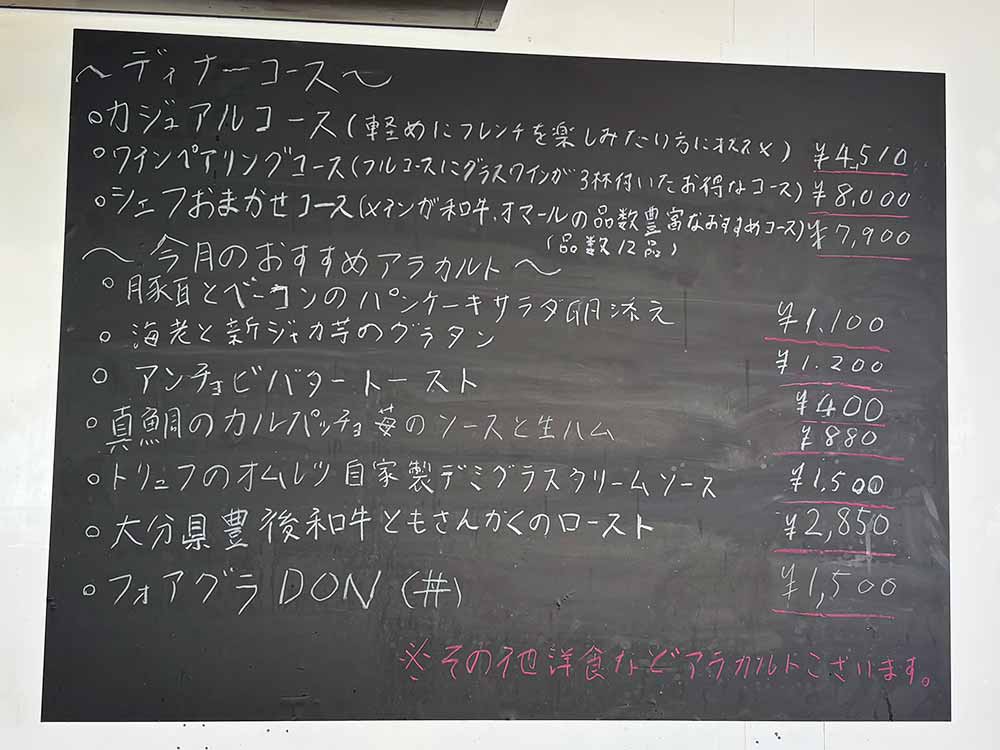 ～ディナーコース～
○カジュアルコース(軽めにフレンチを楽しみたい方にオススメ) ¥4,510
○ワインペアリングコース(フルコースにグラスワインが3杯付いたお得なコース) ¥8,000
○シェフおまかせコース(メインが和牛、オマールの品数豊富なおすすめコース) ¥7,900
(品数12品)
～今月のおすすめアラカルト～
○豚首とベーコンのパンケーキサラダ卵添え ¥1.100
○海老と新ジャガ芋のグラタン ¥1.200
○アンチョビバタートースト ¥400
○真鯛のカルパッチョ苺のソースと生ハム ¥880
○トリュフのオムレツ自家製デミグラスクリームソース ¥1,500
○大分県豊後和牛ともさんかくのロースト ¥2,850
○フォアグラDON(丼) ¥1,500
※その他洋食などアラカルトございます。